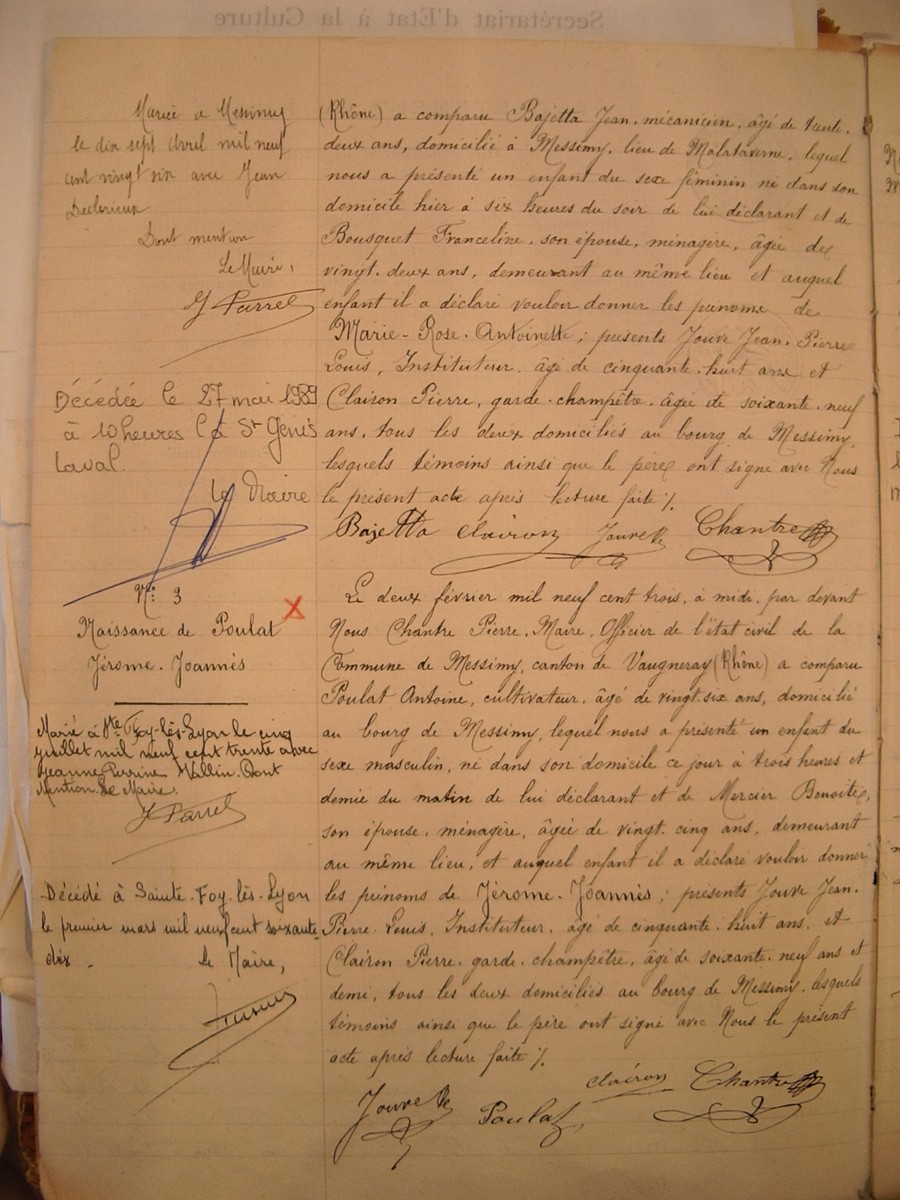 Secrétariat d'Etat à la Culture
Mariée à Messimy
le dix sept Avril mil neuf
cent vingt six avec Jean
Decterieux
Dont mention
Le Maire,
J Parrel
Décédée le 27 mai 1989
à 10 heures à St Genis
Laval.
Le Maire
(Rhône) a comparu Bajetta Jean, mécanicien, âgé de trente-
deux ans, domicilié à Messimy, lieu de Malataverne, lequel
nous a présenté un enfant du sexe féminin né dans son
domicile hier à six heures du soir de lui déclarant et de
Bousquet Franceline, son épouse, ménagère, âgée de
vingt-deux ans, demeurant au même lieu et auquel
enfant il a déclaré vouloir donner les prénoms de
Marie-Rose-Antoinette; présents Jouve Jean-Pierre
Louis, Instituteur, âgé de cinquante-huit ans et
Clairon Pierre, garde-champêtre, âgé de soixante-neuf
ans, tous les deux domiciliés au bourg de Messimy,
lesquels témoins ainsi que le père ont signé avec Nous
le présent acte après lecture faite ./.
Bajetta Clairon Jouve Chantre
N° 3
Naissance de Poulat
Jérome-Joannès
Marié à Ste Foy-lès-Lyon le cinq
juillet mil neuf cent trente avec
Jeanne Perrine Vallin. Dont
Mention. Le Maire.
J Parrel
Décédé à Sainte-Foy-lès-Lyon
le premier mars mil neuf cent soixante
dix. Le Maire,
Le deux février mil neuf cent trois, à midi, par devant
Nous Chantre Pierre, Maire, Officier de l'état civil de la
Commune de Messimy, canton de Vaugneray (Rhône) a comparu
Poulat Antoine, cultivateur, âgé de vingt-six ans, domicilié
au bourg de Messimy, lequel nous a présenté un enfant du
sexe masculin, né dans son domicile ce jour à trois heures et
demie du matin de lui déclarant et de Mercier Benoite,
son épouse, ménagère, âgée de vingt-cinq ans, demeurant
au même lieu, et auquel enfant il a déclaré vouloir donner
les prénoms de Jérome-Joannès; présents Jouve Jean-
Pierre-Louis, Instituteur, âgé de cinquante-huit ans, et
Clairon Pierre, garde-champêtre, âgé de soixante-neuf ans et
demi, tous les deux domiciliés au bourg de Messimy, lesquels
témoins ainsi que le père ont signé avec Nous le présent
acte après lecture faite ./.
Jouve Poulat Clairon Chantre